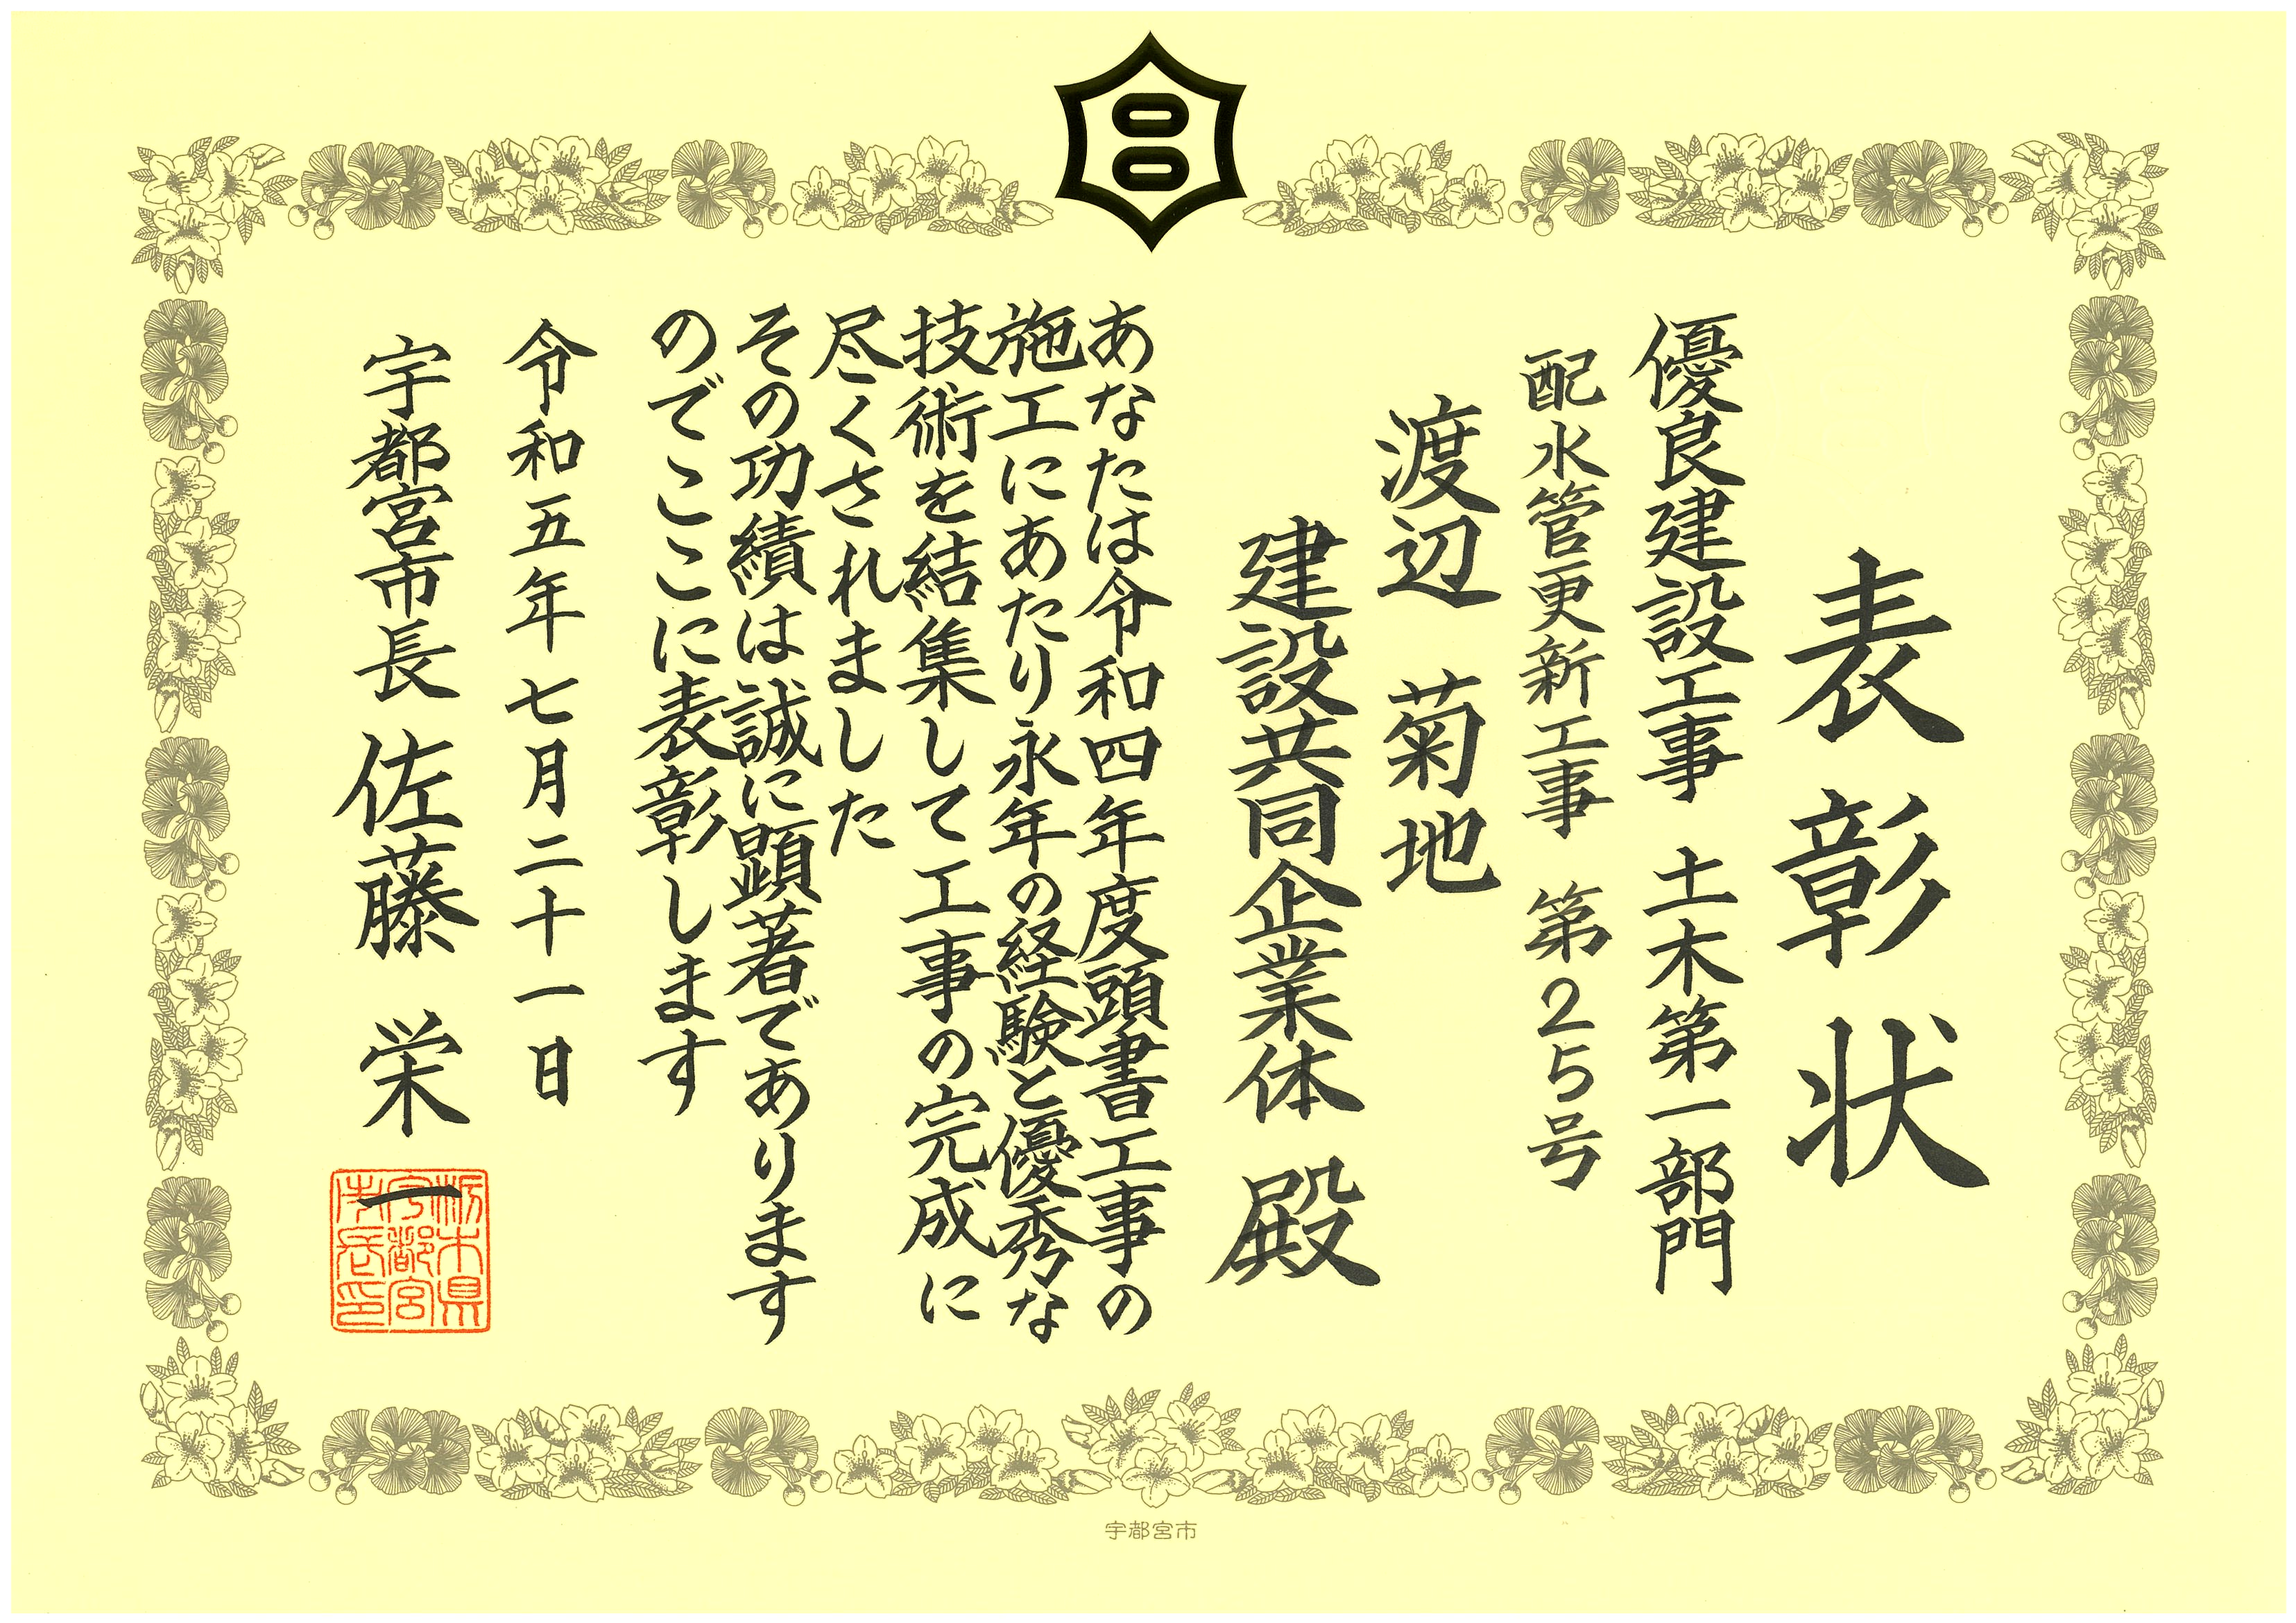 表彰状
優良建設工事 土木第一部門
配水管更新工事 第25号
渡辺 菊地
建設共同企業体 殿
あなたは令和四年度頭書工事の
施工にあたり永年の経験と優秀な
技術を結集して工事の完成に
尽くされました
その功績は誠に顕著であります
のでここに表彰します
令和五年七月二十一日
宇都宮市長 佐藤 栄一
栃木県
宇都宮
市長印
宇都宮市